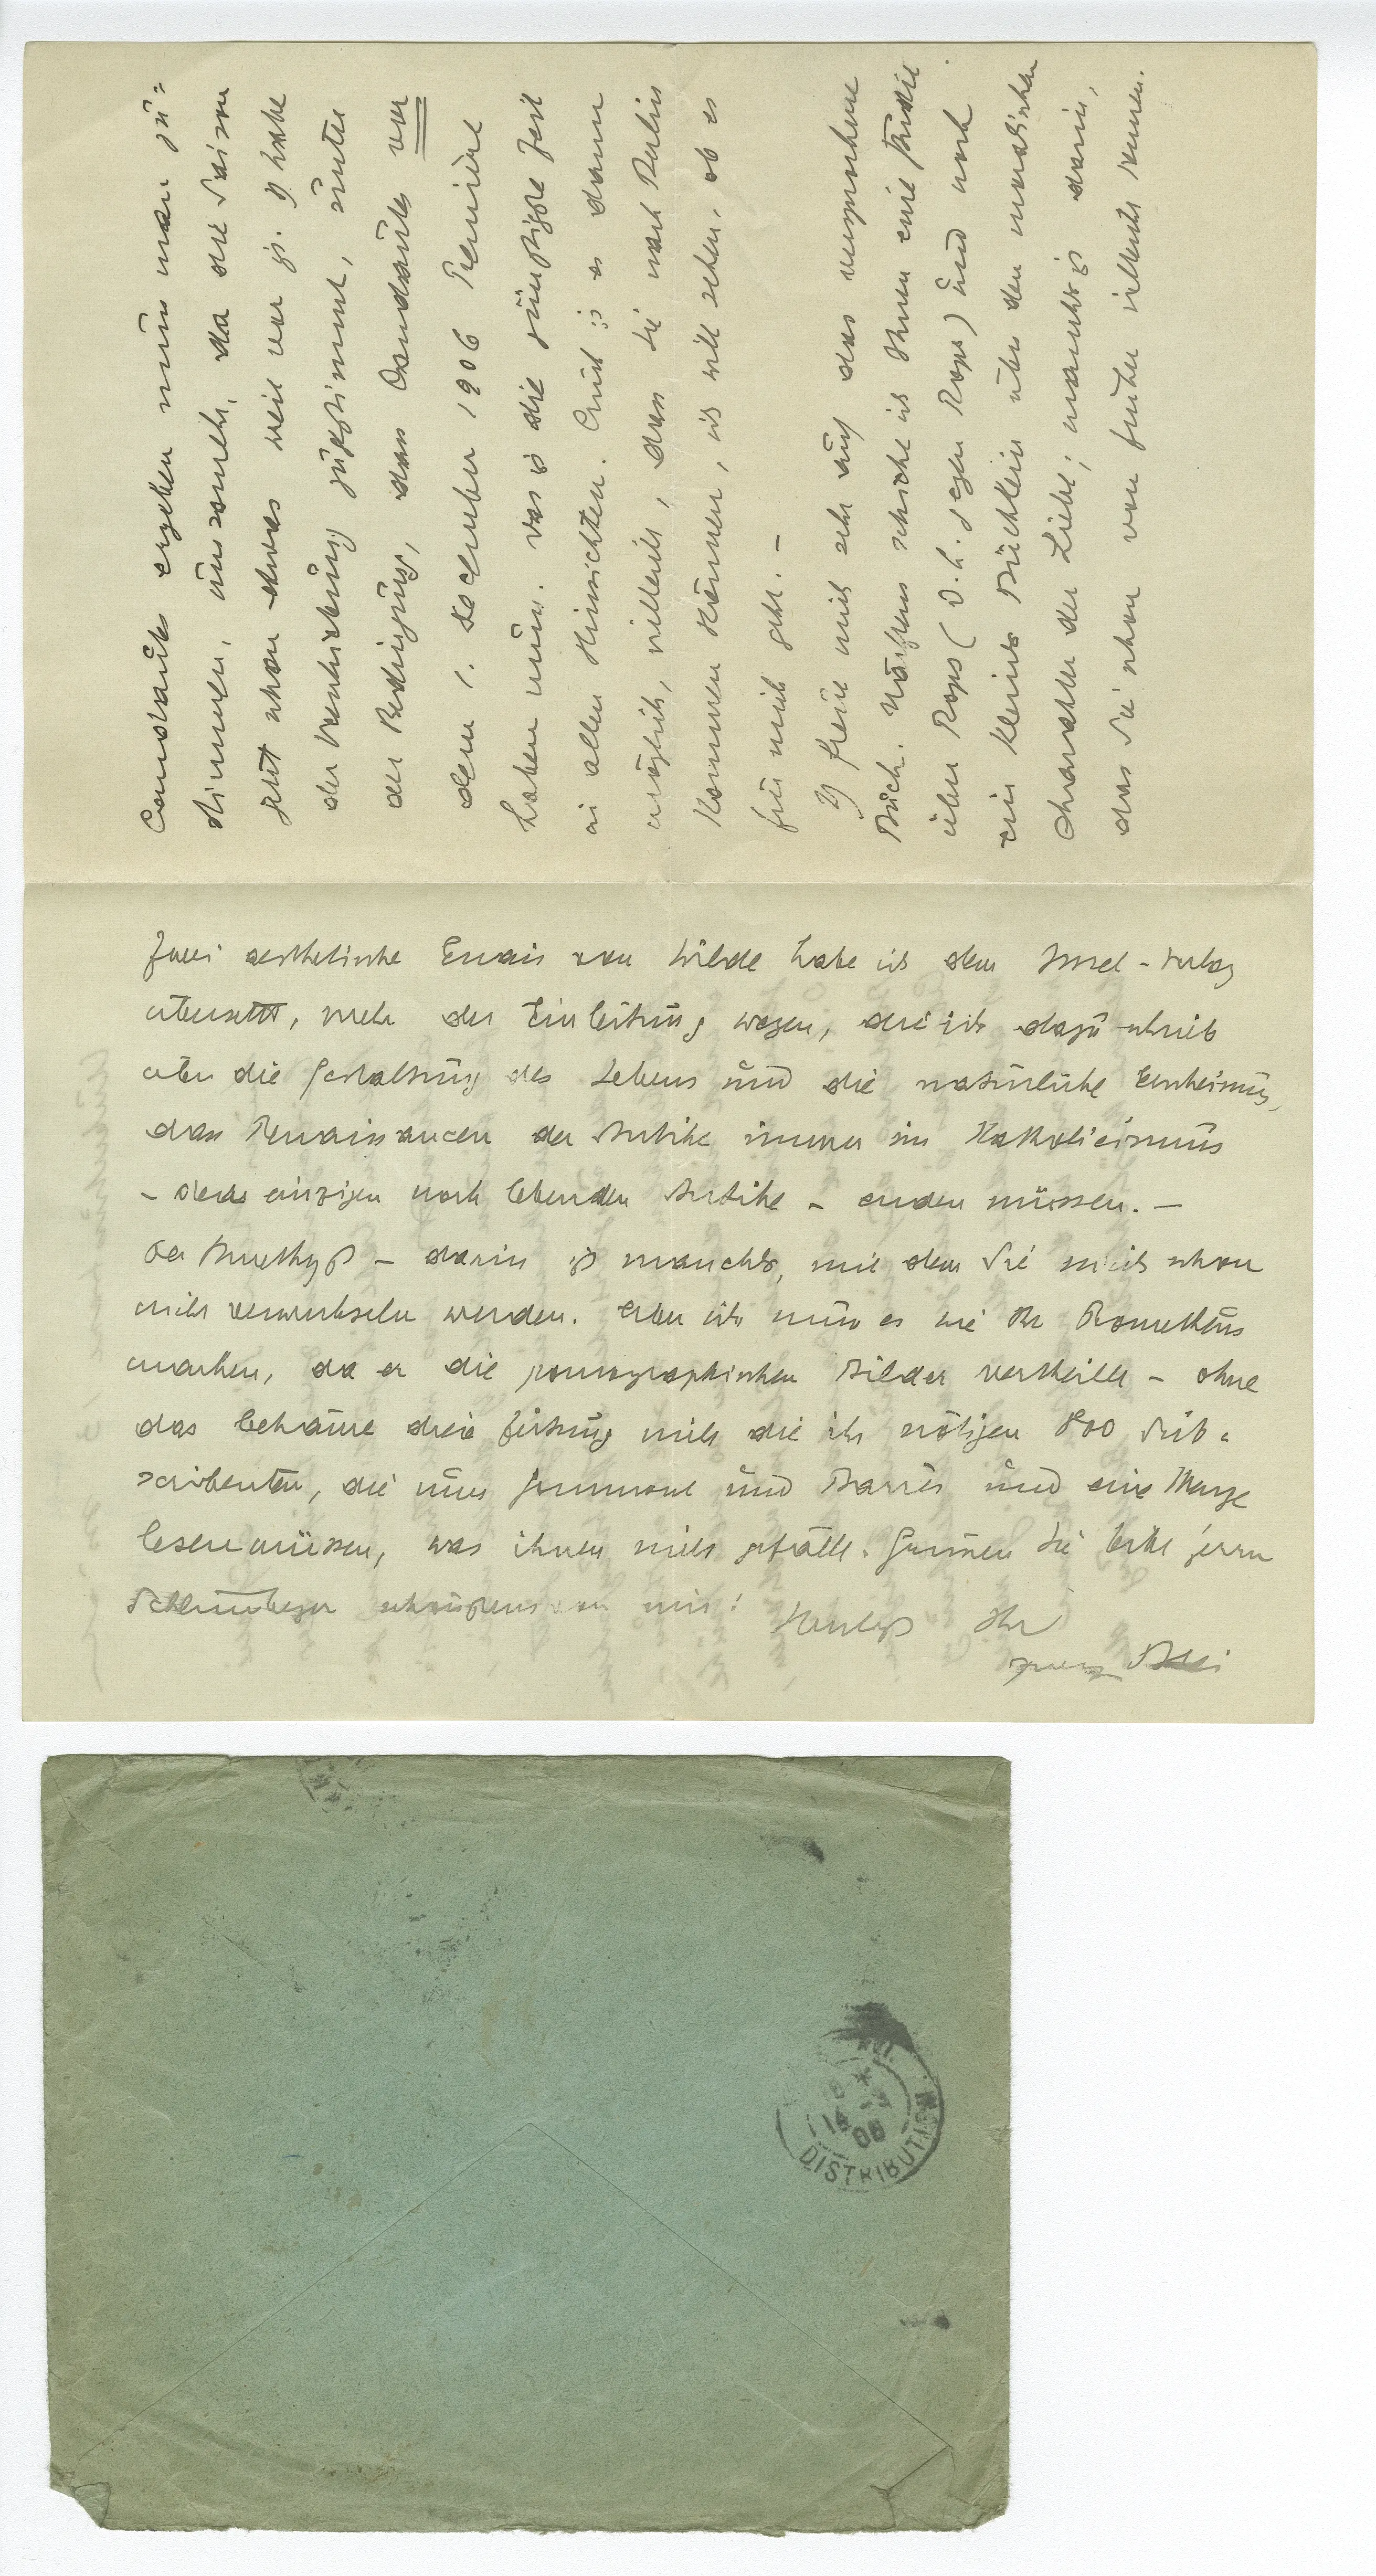 Candaules ergeben muss man zu=
stimmen, umsomehr, da die Saison
jetzt schon etwas weit vor ist. Ich habe
der Verschiebung zugestimmt, unter
der Bedingung, dass Candaules vor
dem 1. December 1906 Première
haben muss. Das ist die günstigste Zeit
in allen Hinsichten. Auch ist es dann
möglich, vielleicht, dass Sie nach Berlin
kommen können, ich will sehen, ob es
für mich geht. –
Ich freue mich sehr auf das versprochene
Buch. Nächstens schicke ich Ihnen eine Studie
über Rops (d. h. gegen Rops) und noch
ein kleines Büchlein über den moralischen
Charakter der Liebe; manches ist darin,
das Sie schon von früher vielleicht kennen.
Zwei aesthetische Essais von Wilde habe ich dem Insel-Verlag
übersetzt, mehr der Einleitung wegen, die ich dazu schrieb
über die Gestaltung des Lebens und die natürliche
dass Renaissancen der Antike immer im Katholicismus
– der einzigen noch lebenden Antike – enden müssen. –
Der Amethyst – darin ist manches, mit dem Sie mich schon
nicht verwechseln werden. Aber ich muss es wie Ihr Prometheus
machen, da er die pornographischen Bilder vertheilt – ohne
das bekäme die Zeitung nicht die ihr nötigen 800 Sub=
scribenten, die nun Gourmont und Barrès und eine Menge
lesen müssen, was ihnen nicht gefällt. Grüssen Sie bitte Herrn
Schlumberger schönstens von mir!
Herzlichst Ihr
Franz Blei
DISTRIBUTION